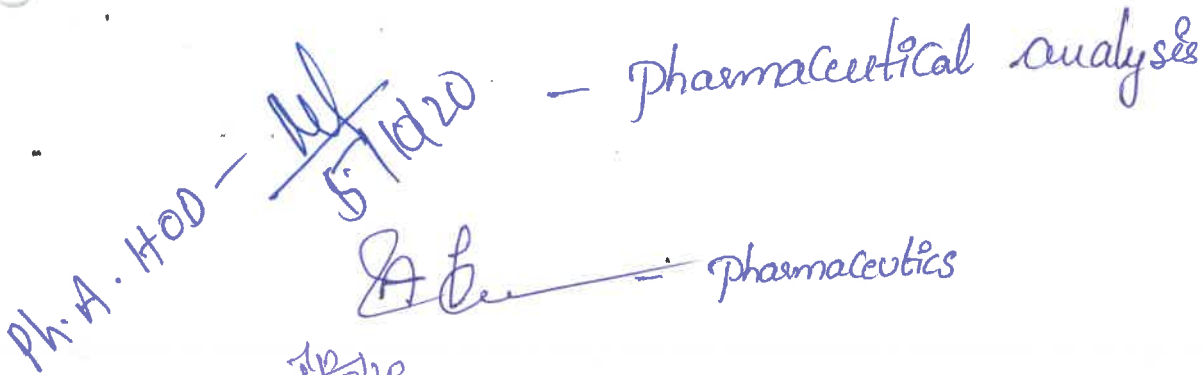 Ph.A. HOD - 5/10/20 - pharmaceutical analysis
- pharmaceutics